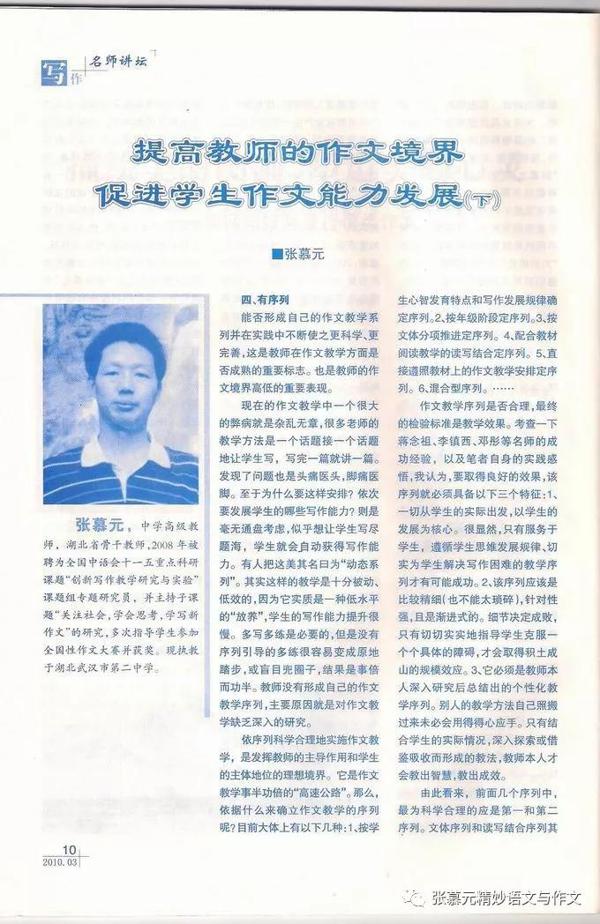 写作
名师讲坛
提高教师的作文境界
促进学生作文能力发展(下)
■张慕元
张慕元，中学高级教
师，湖北省骨干教师，2008年被
聘为全国中语会十一五重点科研
课题“创新写作教学研究与实验”
课题组专题研究员，并主持子课
题“关注社会，学会思考，学写新
作文”的研究，多次指导学生参加
全国性作文大赛并获奖。现执教
于湖北武汉市第二中学。
四、有序列
能否形成自己的作文教学系
列并在实践中不断使之更科学、更
完善，这是教师在作文教学方面是
否成熟的重要标志。也是教师的作
文境界高低的重要表现。
现在的作文教学中一个很大
的弊病就是杂乱无章，很多老师的
教学方法是一个话题接一个话题
地让学生写，写完一篇就讲一篇。
发现了问题也是头痛医头，脚痛医
脚。至于为什么要这样安排？依次
要发展学生的哪些写作能力？则是
毫无通盘考虑，似乎想让学生写尽
题海，学生就会自动获得写作能
力。有人把这美其名曰为“动态系
列”。其实这样的教学是十分被动、
低效的，因为它实质是一种低水平
的“放养”，学生的写作能力提升很
慢。多写多练是必要的，但是没有
序列引导的多练很容易变成原地
踏步，或盲目兜圈子，结果是事倍
而功半。教师没有形成自己的作文
教学序列，主要原因就是对作文教
学缺乏深入的研究。
依序列科学合理地实施作文教
学，是发挥教师的主导作用和学生
的主体地位的理想境界。它是作文
教学事半功倍的“高速公路”。那么，
依据什么来确立作文教学的序列
呢？目前大体上有以下几种：1、按学
生心智发育特点和写作发展规律确
定序列。2、按年级阶段定序列。3、按
文体分项推进定序列。4、配合教材
阅读教学的读写结合定序列。5、直
接遵照教材上的作文教学安排定序
列。6、混合型序列。……
作文教学序列是否合理，最终
的检验标准是教学效果。考查一下
蒋念祖、李镇西、邓彤等名师的成
功经验，以及笔者自身的实践感
悟，我认为，要取得良好的效果，该
序列就必须具备以下三个特征：1、
一切从学生的实际出发，以学生的
发展为核心。很显然，只有服务于
学生，遵循学生思维发展规律、切
实为学生解决写作困难的教学序
列才有可能成功。2、该序列应该是
比较精细（也不能太琐碎），针对性
强，且是渐进式的。细节决定成败，
只有切切实实地指导学生克服一
个个具体的障碍，才会取得积土成
山的规模效应。3、它必须是教师本
人深入研究后总结出的个性化教
学序列。别人的教学方法自己照搬
过来未必会用得得心应手。只有结
合学生的实际情况，深入探索或借
鉴吸收而形成的教法，教师本人才
会教出智慧，教出成效。
由此看来，前面几个序列中，
最为科学合理的应是第一和第二
序列。文体序列和读写结合序列其
10
2010.03
张慕元精妙语文与作文